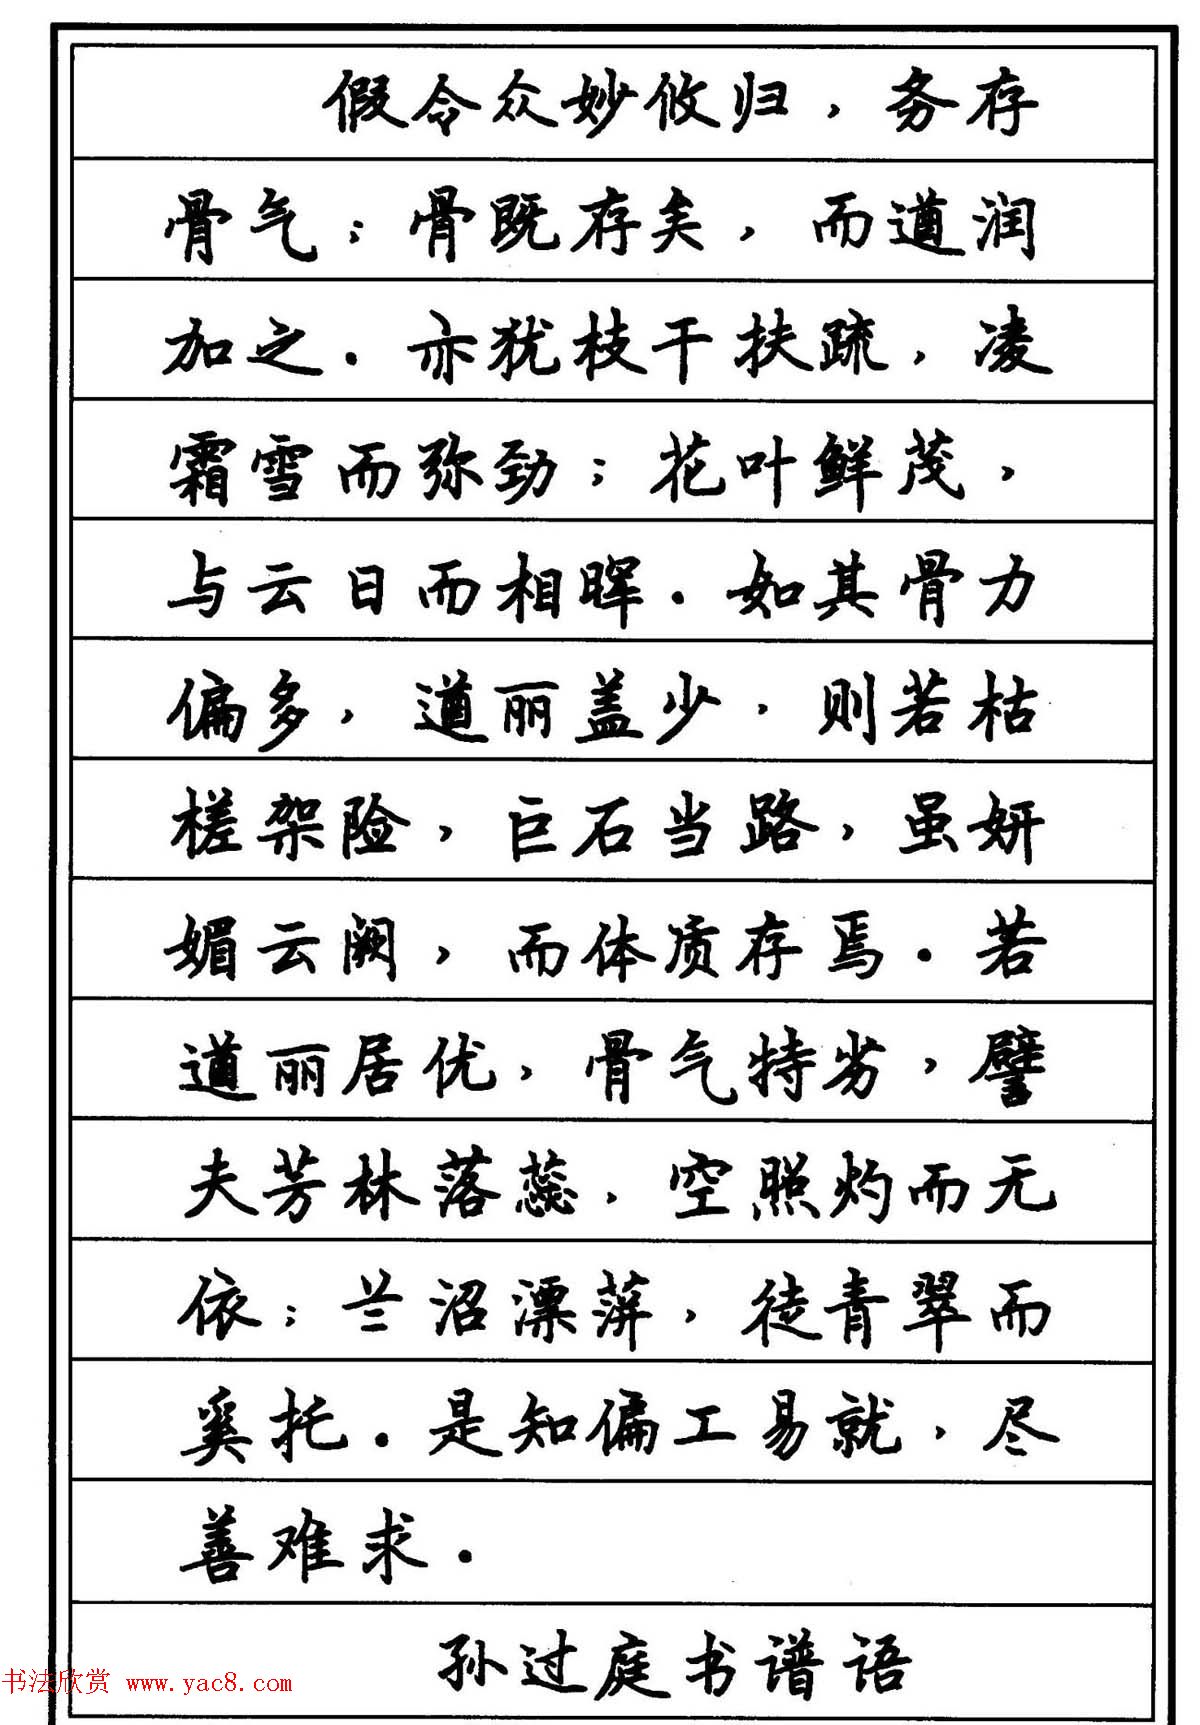 假令众妙攸归，务存
骨气；骨既存矣，而遒润
加之．亦犹枝干扶疏，凌
霜雪而弥劲；花叶鲜茂，
与云日而相晖．如其骨力
偏多，遒丽盖少，则若枯
槎架险，巨石当路，虽妍
媚云阙，而体质存焉．若
遒丽居优，骨气特劣，譬
夫芳林落蕊，空照灼而无
依；兰沼漂蓱，徒青翠而
奚托．是知偏工易就，尽
善难求．
孙过庭书谱语
书法欣赏 www.yac8.com